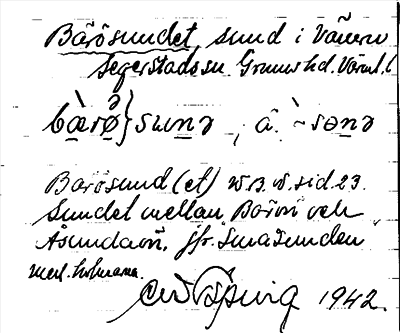 Bärösundet, sund i Vänern
Segerstads sn. Grums hd. Värml. l
bæ̀rǿ̀ə}sunə, â. `~sənə
Barösund(et) W.B. W. sid 23.
Sundet mellan Bärön och
Åsundaön, jfr. Småsunden
mel. holmarna.
1942.